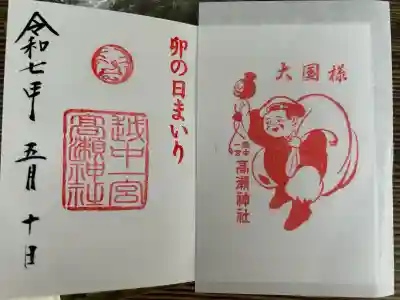 卯の日まいり
越中一宮
高瀬神社
令和七年 五月 十日
大国様
越中
一宮
高瀬神社